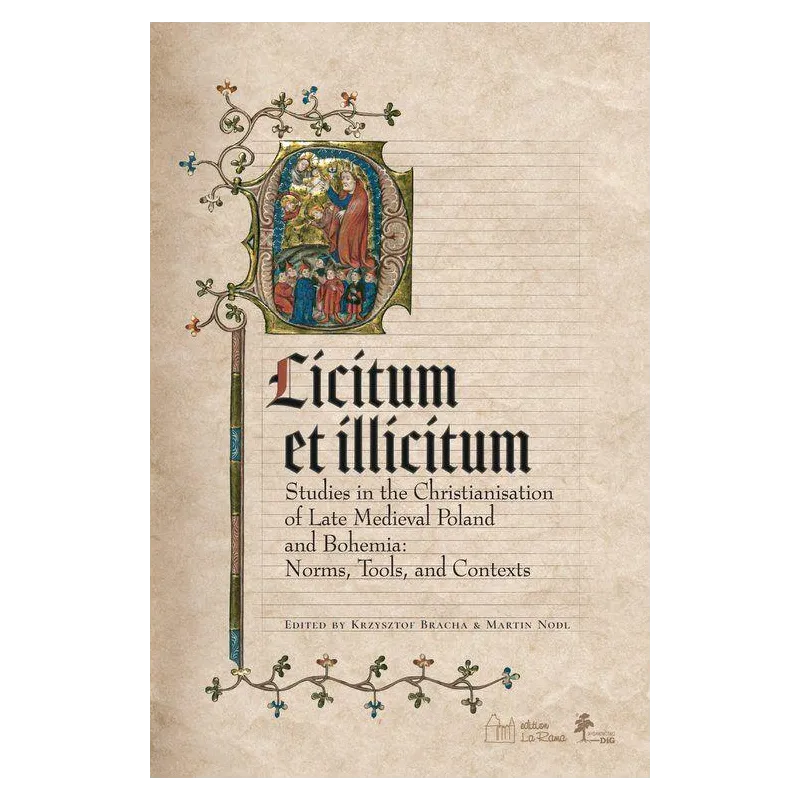 Licitum
et illicitum
Studies in the Christianisation
of Late Medieval Poland
and Bohemia:
Norms, Tools, and Contexts
Edited by Krzysztof Bracha & Martin Nodl
edition
La Rama
WYDAWNICTWO
DiG